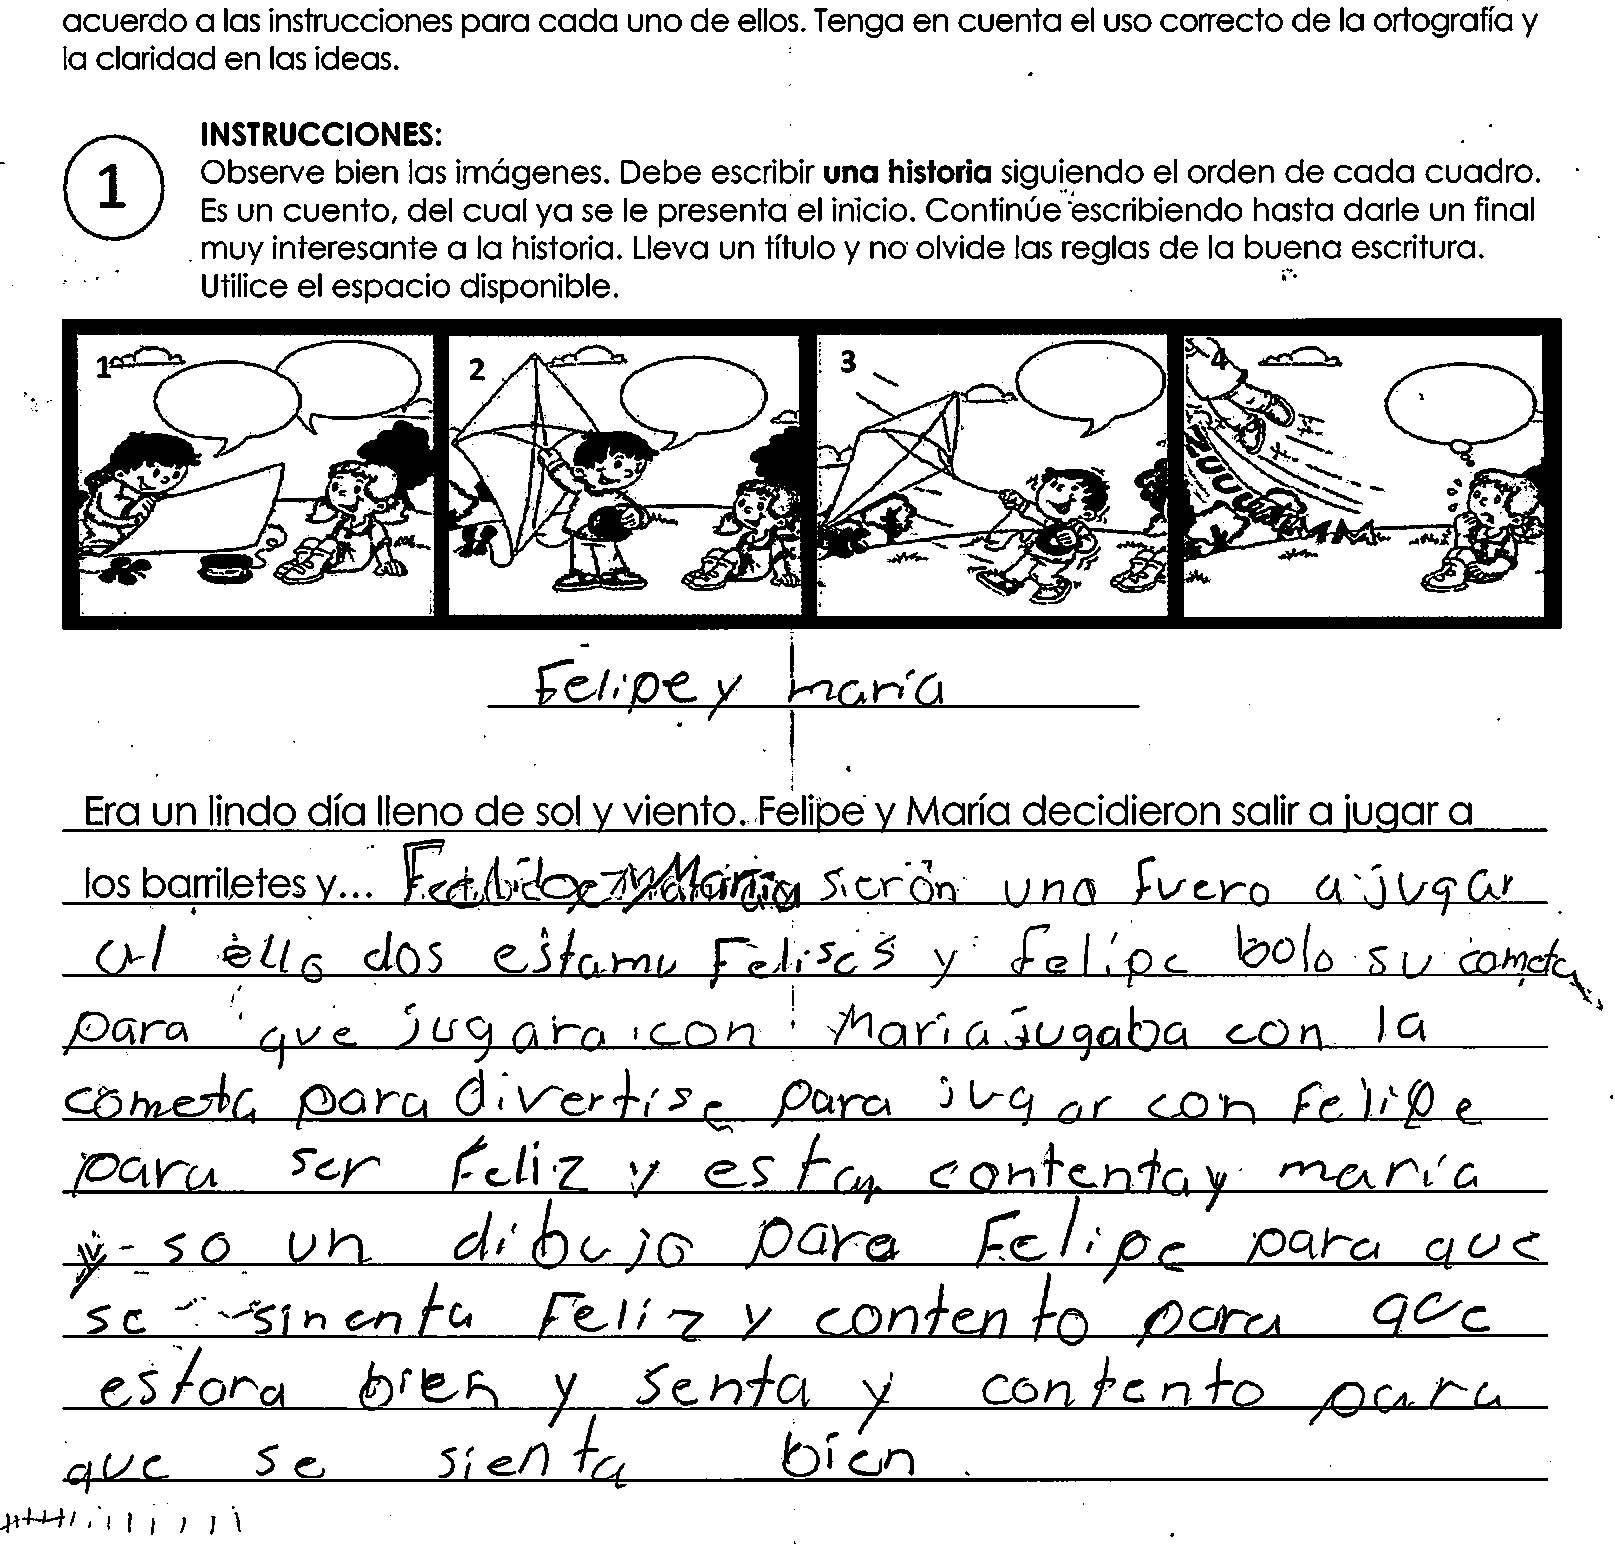 acuerdo a las instrucciones para cada uno de ellos. Tenga en cuenta el uso correcto de la ortografía y
la claridad en las ideas.
1
INSTRUCCIONES:
Observe bien las imágenes. Debe escribir una historia siguiendo el orden de cada cuadro.
Es un cuento, del cual ya se le presenta el inicio. Continúe escribiendo hasta darle un final
muy interesante a la historia. Lleva un título y no olvide las reglas de la buena escritura.
Utilice el espacio disponible.
1 2 3 4
Felipe y maría
Era un lindo día lleno de sol y viento. Felipe y María decidieron salir a jugar a
los barriletes y... sierón una fuero a jugar
al ello dos estamu Felises y felipe bolo su cometa
para que jugara con María jugaba con la
cometa para divertise para jugar con Felipe
para ser Feliz y estar contenta y maria
y so un dibujo para Felipe para que
se sinenta Feliz y contento para que
estora bien y senta y contento para
que se sienta bien.